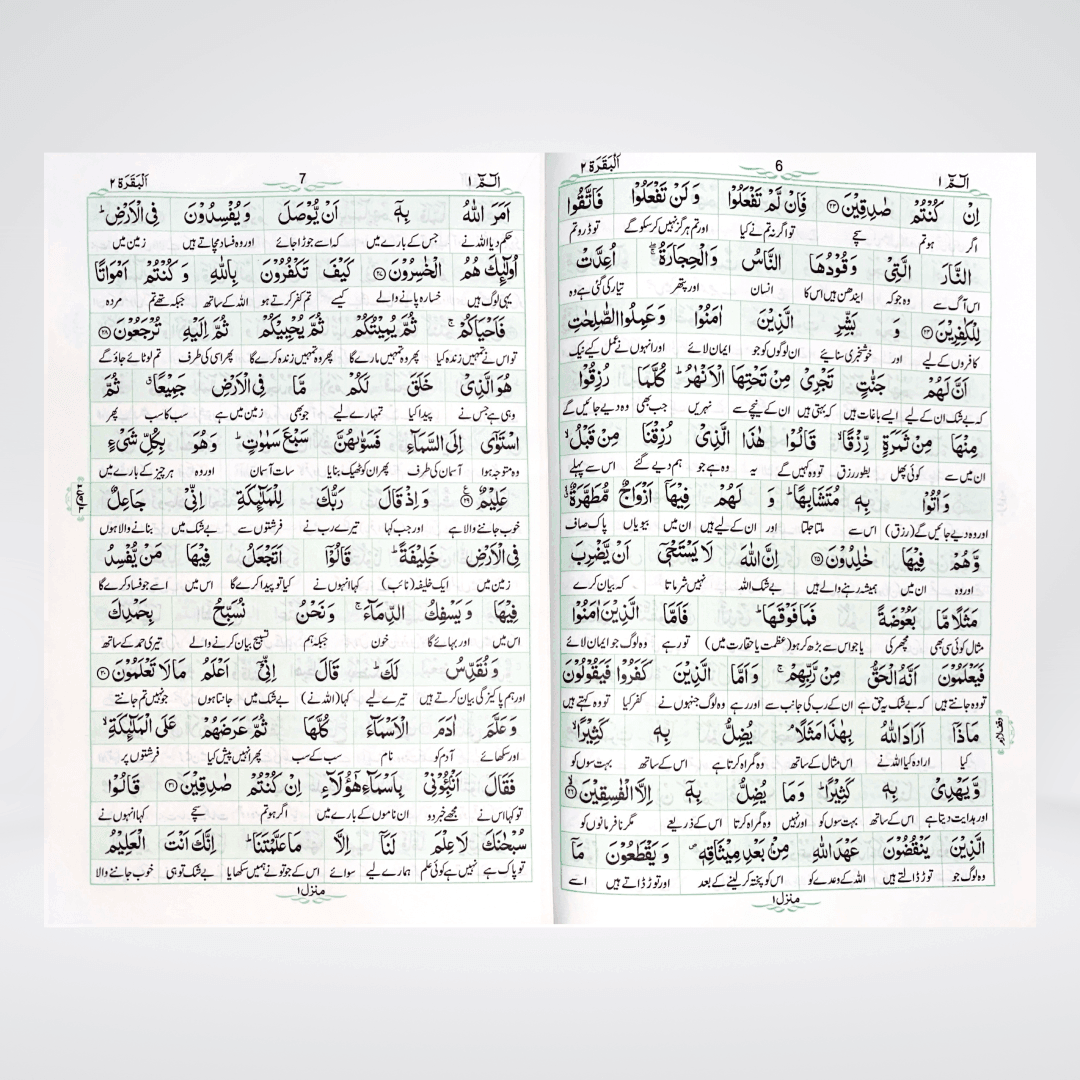 الٓمّٓ ١ 6 اَلْبَقَرَة ٢
اِنْ كُنْتُمْ صٰدِقِيْنَ ﴿٢٣﴾ فَاِنْ لَّمْ تَفْعَلُوْا وَ لَنْ تَفْعَلُوْا فَاتَّقُوا
اگر ہو تم سچے تو اگر نہ تم نے کیا اور تم ہر گز نہیں کر سکو گے تو ڈرو تم
النَّارَ الَّتِيْ وَقُوْدُهَا النَّاسُ وَ الْحِجَارَةُ ۖۚ اُعِدَّتْ
اس آگ سے وہ جو کہ ایندھن ہیں اس کا انسان اور پتھر تیار کی گئی ہے وہ
لِلْكٰفِرِيْنَ ﴿٢٤﴾ وَ بَشِّرِ الَّذِيْنَ اٰمَنُوْا وَ عَمِلُوا الصّٰلِحٰتِ
کافروں کے لیے اور خوشخبری سنایئے ان لوگوں کو جو ایمان لائے اور انہوں نے عمل کیے نیک
اَنَّ لَهُمْ جَنّٰتٍ تَجْرِيْ مِنْ تَحْتِهَا الْاَنْهٰرُ ؕ كُلَّمَا رُزِقُوْا
کہ بے شک ان کے لیے ایسے باغات ہیں کہ بہتی ہیں ان کے نیچے سے نہریں جب بھی وہ دیے جائیں گے
مِنْهَا مِنْ ثَمَرَةٍ رِّزْقًا ۙ قَالُوْا هٰذَا الَّذِيْ رُزِقْنَا مِنْ قَبْلُ ۙ
ان میں سے کوئی پھل بطور رزق تو وہ کہیں گے یہ وہ ہے جو ہم دیے گئے اس سے پہلے
وَ اُتُوْا بِهٖ مُتَشَابِهًا ؕ وَ لَهُمْ فِيْهَاۤ اَزْوَاجٌ مُّطَهَّرَةٌ ۙ
اور وہ دیے جائیں گے (رزق) اس سے ملتا جلتا اور ان کے لیے ہیں ان میں بیویاں پاک صاف
وَّ هُمْ فِيْهَا خٰلِدُوْنَ ﴿٢٥﴾ اِنَّ اللّٰهَ لَا يَسْتَحْيٖۤ اَنْ يَّضْرِبَ
اور وہ ان میں ہمیشہ رہنے والے ہیں بے شک اللہ نہیں شرماتا کہ بیان کرے
مَثَلًا مَّا بَعُوْضَةً فَمَا فَوْقَهَا ؕ فَاَمَّا الَّذِيْنَ اٰمَنُوْا
مثال کوئی سی بھی مچھر کی یا جو اس سے بڑھ کر ہو (عظمت یا حقارت میں) تو رہے وہ لوگ جو ایمان لائے
فَيَعْلَمُوْنَ اَنَّهُ الْحَقُّ مِنْ رَّبِّهِمْ ۚ وَ اَمَّا الَّذِيْنَ كَفَرُوْا فَيَقُوْلُوْنَ
تو وہ جانتے ہیں کہ بے شک یہ حق ہے ان کے رب کی جانب سے اور رہے وہ لوگ جنہوں نے کفر کیا تو وہ کہتے ہیں
مَاذَاۤ اَرَادَ اللّٰهُ بِهٰذَا مَثَلًا ۘ يُضِلُّ بِهٖ كَثِيْرًا ۙ
کیا ارادہ کیا اللہ نے اس مثال کے ساتھ وہ گمراہ کرتا ہے اس کے ساتھ بہت سوں کو
وَّ يَهْدِيْ بِهٖ كَثِيْرًا ؕ وَ مَا يُضِلُّ بِهٖۤ اِلَّا الْفٰسِقِيْنَ ﴿٢٦﴾ ۙ
اور ہدایت دیتا ہے اس کے ساتھ بہت سوں کو اور نہیں وہ گمراہ کرتا اس کے ذریعے مگر نافرمانوں کو
الَّذِيْنَ يَنْقُضُوْنَ عَهْدَ اللّٰهِ مِنْۢ بَعْدِ مِيْثَاقِهٖ ۪ وَ يَقْطَعُوْنَ مَاۤ
وہ لوگ جو توڑ ڈالتے ہیں اللہ کے وعدے کو اس کو پختہ کر لینے کے بعد اور توڑ ڈاتے ہیں اسے
منزل ١
الٓمّٓ ١ 7 اَلْبَقَرَة ٢
اَمَرَ اللّٰهُ بِهٖۤ اَنْ يُّوْصَلَ وَ يُفْسِدُوْنَ فِي الْاَرْضِ ؕ
حکم دیا اللہ نے جس کے بارے میں کہ اسے جوڑا جائے اور وہ فساد مچاتے ہیں زمین میں
اُولٰٓئِكَ هُمُ الْخٰسِرُوْنَ ﴿٢٧﴾ كَيْفَ تَكْفُرُوْنَ بِاللّٰهِ وَ كُنْتُمْ اَمْوَاتًا
یہی لوگ ہیں خسارہ پانے والے کیسے تم کفر کرتے ہو اللہ کے ساتھ جبکہ تھے تم مردہ
فَاَحْيَاكُمْ ۚ ثُمَّ يُمِيْتُكُمْ ثُمَّ يُحْيِيْكُمْ ثُمَّ اِلَيْهِ تُرْجَعُوْنَ ﴿٢٨﴾
تو اس نے تمہیں زندہ کیا پھر وہ تمہیں مارے گا پھر وہ تمہیں زندہ کرے گا پھر اسی کی طرف تم لوٹائے جاؤ گے
هُوَ الَّذِيْ خَلَقَ لَكُمْ مَّا فِي الْاَرْضِ جَمِيْعًا ۗ ثُمَّ
وہی ہے جس نے پیدا کیا تمہارے لیے جو بھی زمین میں ہے سب کا سب پھر
اسْتَوٰۤى اِلَى السَّمَآءِ فَسَوّٰىهُنَّ سَبْعَ سَمٰوٰتٍ ؕ وَ هُوَ بِكُلِّ شَيْءٍ
وہ متوجہ ہوا آسمان کی طرف پھر ان کو ٹھیک بنایا سات آسمان اور وہ ہر چیز کے بارے میں
عَلِيْمٌ ﴿٢٩﴾ وَ اِذْ قَالَ رَبُّكَ لِلْمَلٰٓئِكَةِ اِنِّيْ جَاعِلٌ
خوب جاننے والا ہے اور جب کہا تیرے رب نے فرشتوں سے بے شک میں بنانے والا ہوں
فِي الْاَرْضِ خَلِيْفَةً ؕ قَالُوْۤا اَتَجْعَلُ فِيْهَا مَنْ يُّفْسِدُ
زمین میں ایک خلیفہ (نائب) کہا انہوں نے کیا تو پیدا کرے گا اس میں اسے جو فساد کرے گا
فِيْهَا وَ يَسْفِكُ الدِّمَآءَ ۚ وَ نَحْنُ نُسَبِّحُ بِحَمْدِكَ
اس میں اور بہائے گا خون جبکہ ہم تسبیح بیان کرنے والے تیری حمد کے ساتھ
وَ نُقَدِّسُ لَكَ ؕ قَالَ اِنِّيْۤ اَعْلَمُ مَا لَا تَعْلَمُوْنَ ﴿٣٠﴾
اور ہم پاکیزگی بیان کرتے ہیں تیرے لیے کہا (اللہ نے) بے شک میں جانتا ہوں جو نہیں تم جانتے
وَ عَلَّمَ اٰدَمَ الْاَسْمَآءَ كُلَّهَا ثُمَّ عَرَضَهُمْ عَلَى الْمَلٰٓئِكَةِ ۙ
اور سکھائے آدم کو نام سب کے سب پھر انہیں پیش کیا فرشتوں پر
فَقَالَ اَنْۢبِـُٔوْنِيْ بِاَسْمَآءِ هٰۤؤُلَآءِ اِنْ كُنْتُمْ صٰدِقِيْنَ ﴿٣١﴾ قَالُوْا
تو کہا اس نے مجھے خبر دو ان ناموں کے بارے میں اگر ہو تم سچے کہا انہوں نے
سُبْحٰنَكَ لَا عِلْمَ لَنَاۤ اِلَّا مَا عَلَّمْتَنَا ؕ اِنَّكَ اَنْتَ الْعَلِيْمُ
تو پاک ہے نہیں ہے کوئی علم ہمارے لیے سوائے اس کے جو تو نے ہمیں سکھایا بے شک تو ہی خوب جاننے والا
منزل ١